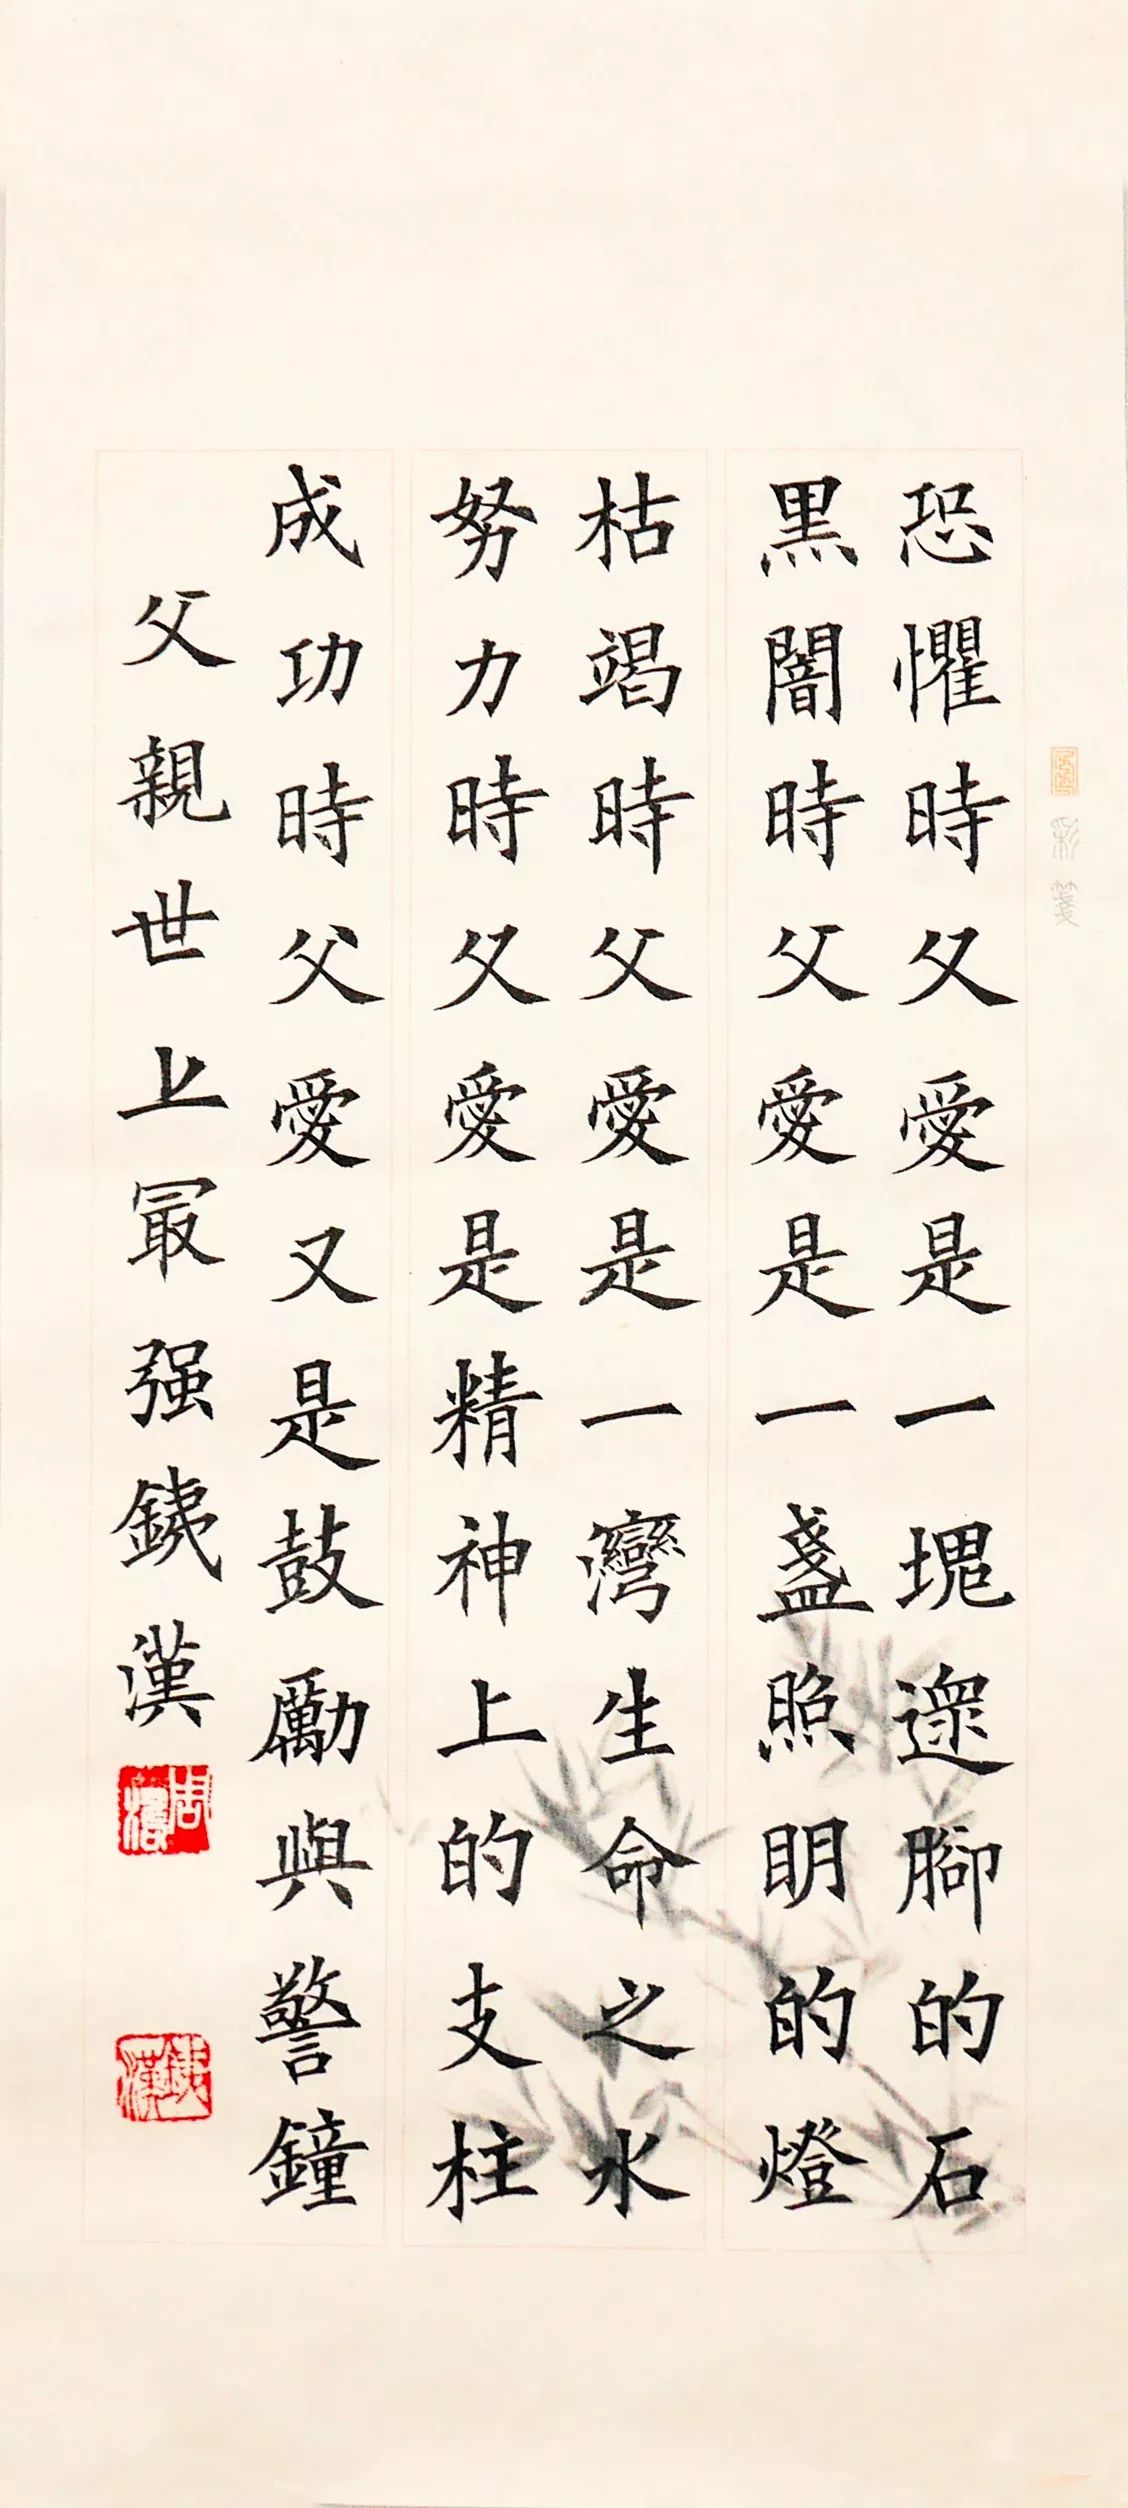 彩箋
恐懼時父愛是一塊腳的石
黑闇時父愛是一盞照明的燈
枯竭時父愛是一灣生命之水
努力時父愛是精神上的支柱
成功時父愛又是鼓勵與警鐘
父親世上冣强銕漢
銕漢